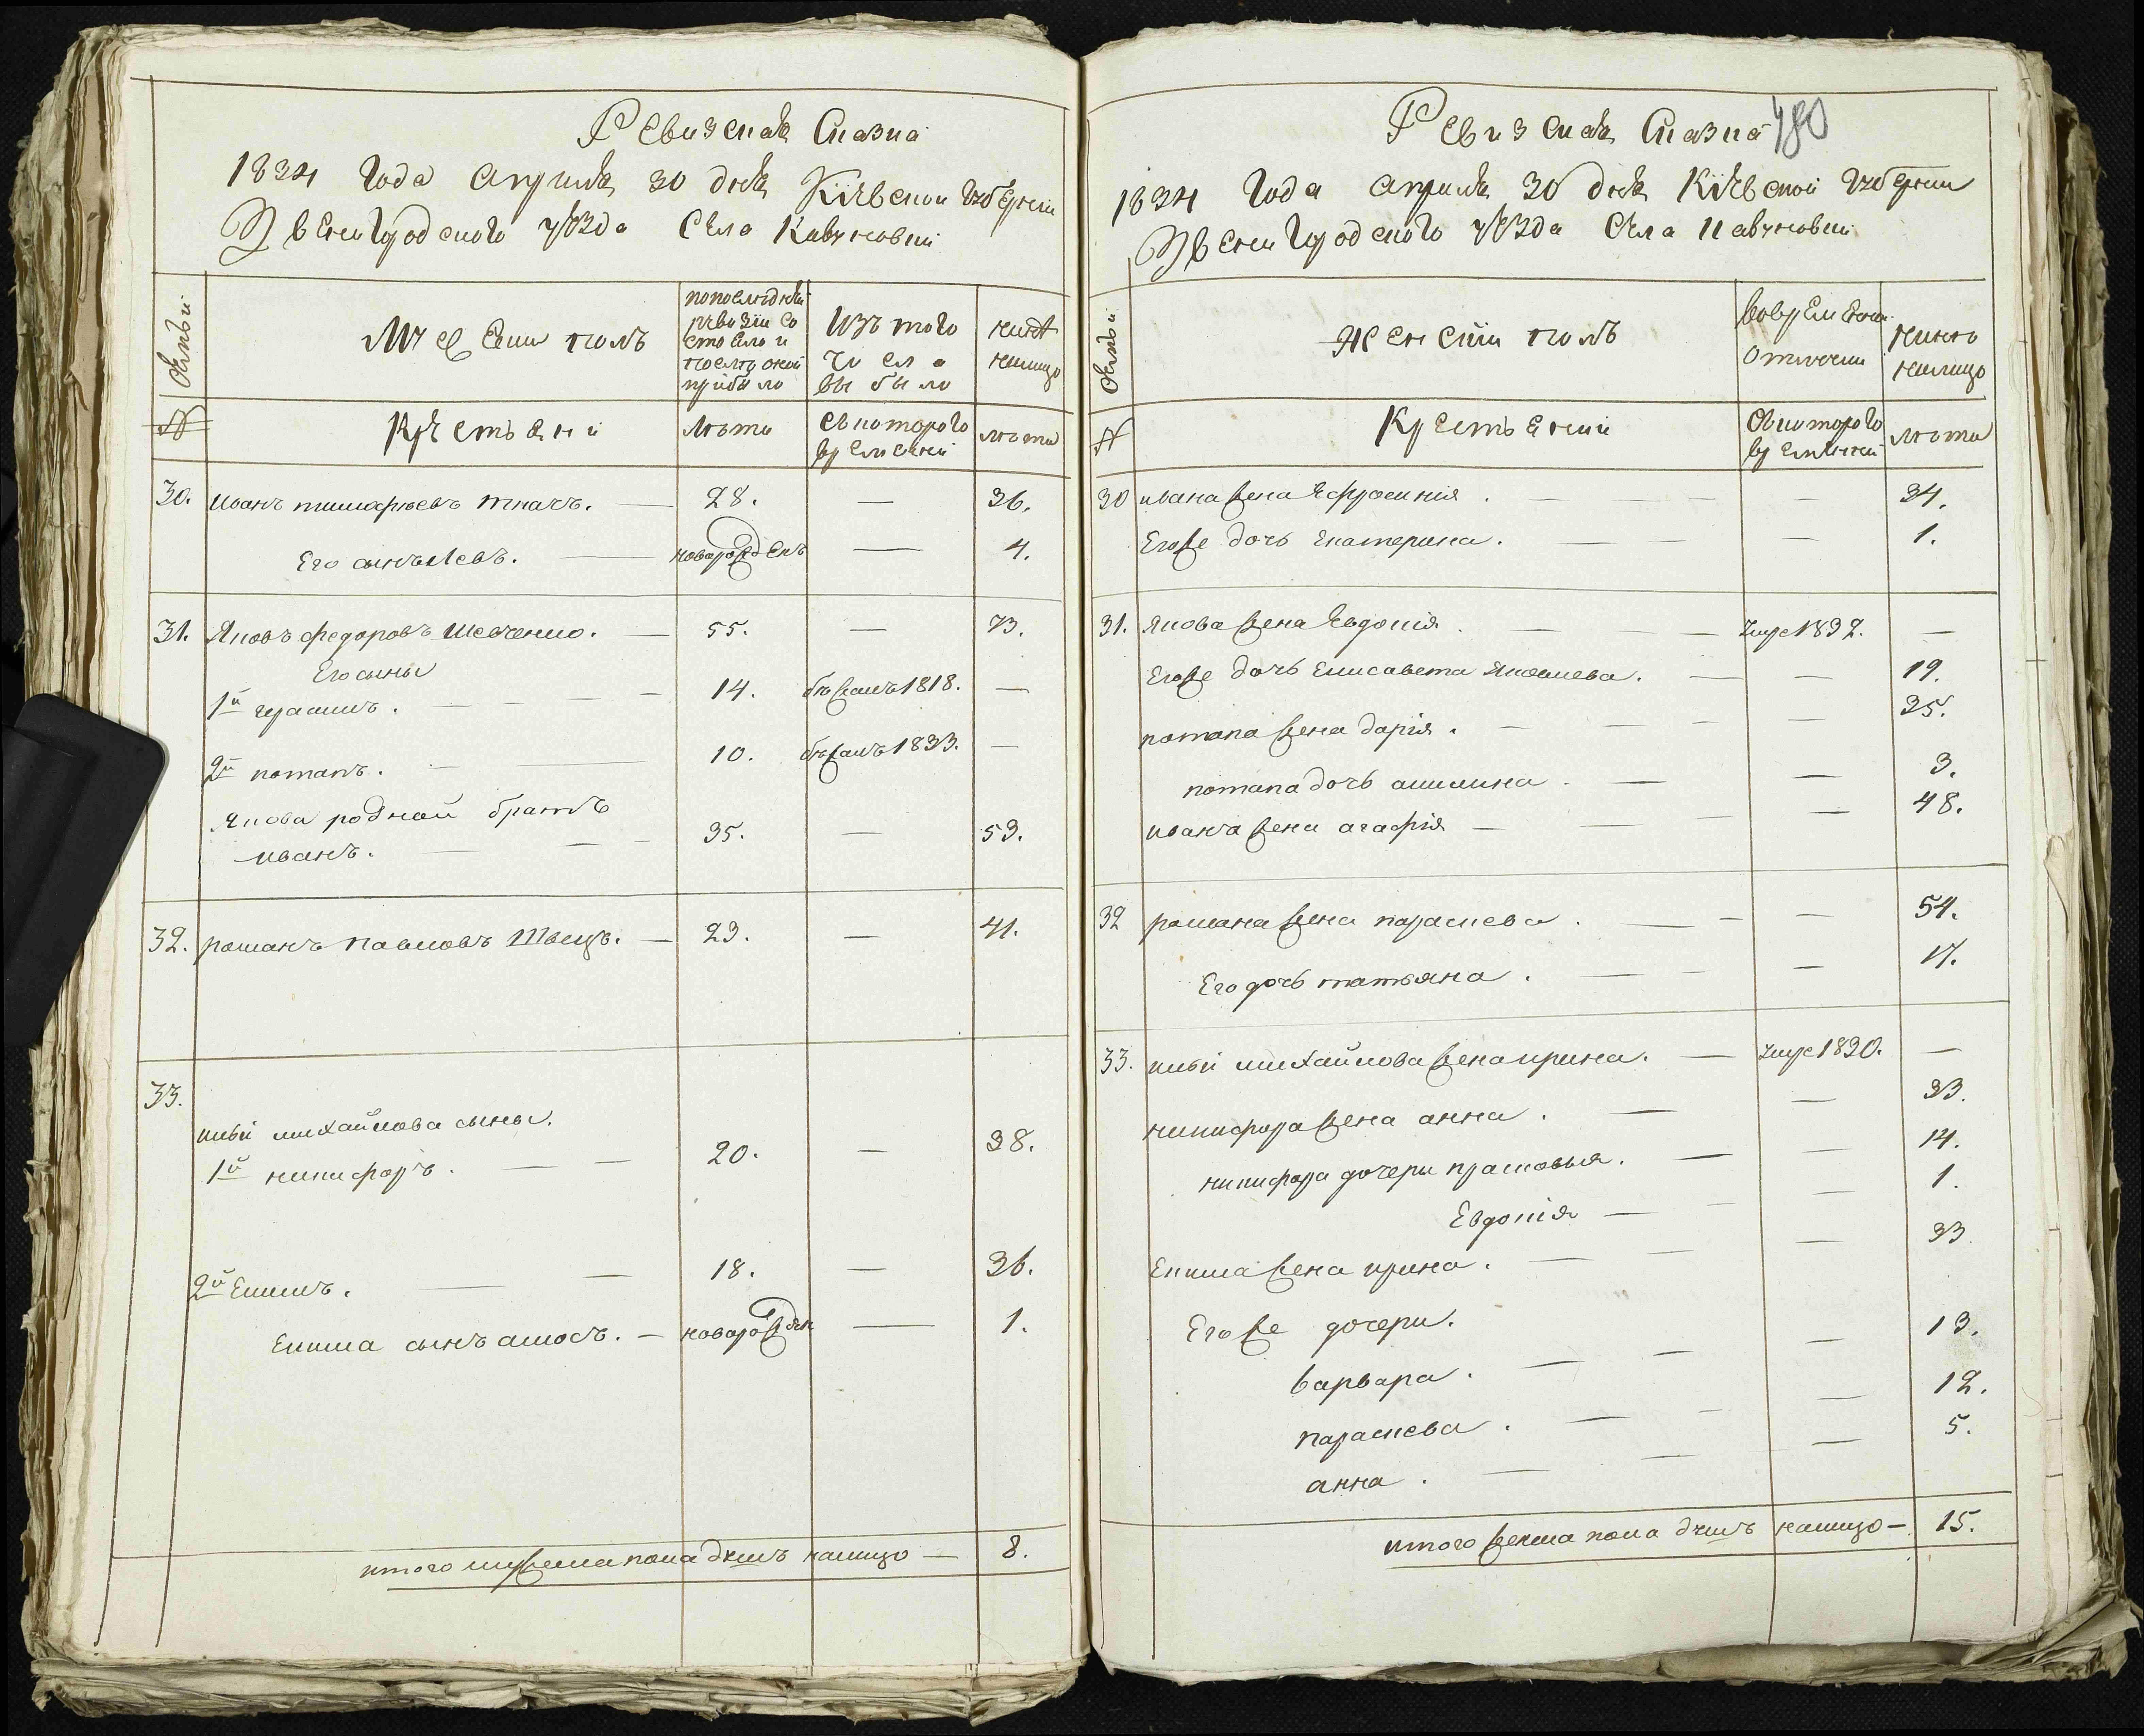 Ревизская Сказка
1834 Года Апреля 30 дня Кіевской Губерніи
Звенигородского уѣзда Села Кавуновки
Семьи
Мужеский полъ
по последней ревизіи состояло и после оной прибыло
Изъ того числа выбыло
нынѣ на лицо
№
Крестьяни
Лѣта
Съ которого времени
лѣта
30. иванъ тимофеевъ ткачь. — 28. — 36.
Его сынъ Левъ. — новорожденъ — 4.
31. Яковъ федоровъ Шевченко. — 55. — 73.
Его сыны
1й герасимъ. — — — 14. бѣжалъ 1818. —
2й потапъ. — — 10. бѣжалъ 1833. —
Якова родной братъ
иванъ. — — — 35. — 53.
32. романъ павловъ Швецъ. — 23. — 41.
33.
михайлова сыны.
1й никифоръ. — — 20. — 38.
2й Екимъ. — — 18. — 36.
Екима сынъ амосъ. — новорожден — 1.
итого мужеска пола душъ налицо — 8.
480
Ревизская Сказка
1834 Года Апреля 30 дня Кіевской Губерніи
Звенигородского уѣзда Села Кавуновки
Семьи
Женскій полъ
во временной отлучки
нынѣ налицо
№
Крестьянки
Съ которого времени
лѣта
30 ивана жена Ефросинія. — — — — 34.
Егоже дочь Екатерина. — — — 1.
31. Якова жена Евдокія. — — — умре 1832. —
Егоже дочь Елисавета Яковлева. — — 19.
потапа жена дарія. — — — — 35.
потапа дочь акилина. — — 3.
ивана жена агафія — — — — 48.
32 романа жена параскева. — — — 54.
Его дочь татьяна. — — — 17.
33. михайлова жена ирина. — умре 1830. —
никифора жена анна. — — 33.
никифора дочери прасковья. — — 14.
Евдокія — — — 1.
Екима жена ирина. — — — 33.
Егоже дочери.
варвара. — — — 13.
параскева. — — — 12.
анна. — — — 5.
итого женска пола душъ налицо — 15.